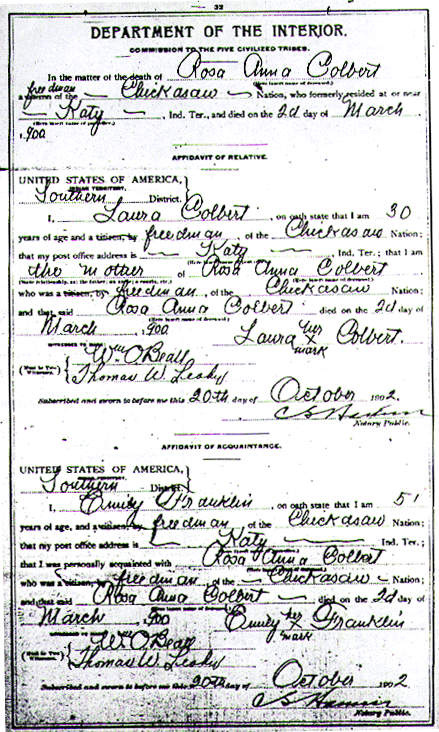 32
DEPARTMENT OF THE INTERIOR.
COMMISSION TO THE FIVE CIVILIZED TRIBES.
In the matter of the death of Rosa Anna Colbert
freedman
a citizen of the Chickasaw Nation, who formerly resided at or near
Katy, Ind. Ter., and died on the 2d day of March,
1900
AFFIDAVIT OF RELATIVE.
UNITED STATES OF AMERICA,
INDIAN TERRITORY,
Southern District.
I, Laura Colbert, on oath state that I am 30
years of age and a citizen, by freedman, of the Chickasaw Nation;
that my post office address is Katy Ind. Ter.; that I am
the mother of Rosa Anna Colbert
who was a citizen, by freedman, of the Chickasaw Nation
and that said Rosa Anna Colbert died on the 2d day of
March, 1900
Laura her x mark Colbert.
WITNESSES TO MARK:
(Must be Two Witnesses.)
Wm O. Beall
Thomas W. Leahy
Subscribed and sworn to before me this 20th day of October 1902.
Notary Public.
AFFIDAVIT OF ACQUAINTANCE.
UNITED STATES OF AMERICA,
INDIAN TERRITORY,
Southern District.
I, Emily Franklin, on oath state that I am 51
years of age, and a citizen, by freedman, of the Chickasaw Nation;
that my post office address is Katy, Ind. Ter.;
that I was personally acquainted with Rosa Anna Colbert
who was a citizen, by freedman, of the Chickasaw Nation;
and that said Rosa Anna Colbert died on the 2d day of
March, 1900
Emily her x mark Franklin
WITNESSES TO MARK:
(Must be Two Witnesses.)
Wm O. Beall
Thomas W. Leahy
Subscribed and sworn to before me this 20th day of October 1902
Notary Public.